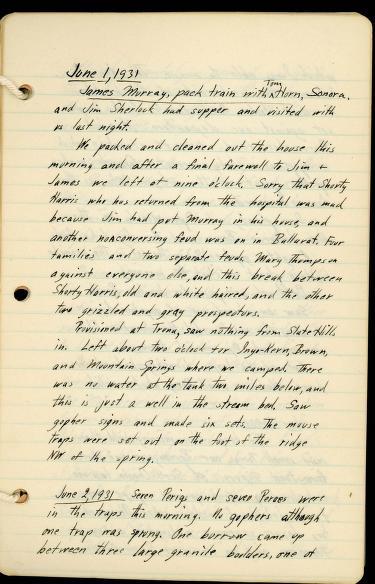 June 1, 1931
James Murray, pack train with Tom Horn, Sonora,
and Jim Sherlock had supper and visited with
us last night.
We packed and cleaned out the house this
morning and after a final farewell to Jim +
James we left at nine o'clock. Sorry that Shorty
Harris who has returned from the hospital was mad
because Jim had put Murray in his house, and
another nonconversing feud was on in Ballarat. Four
families and two separate feuds. Mary Thompson
against everyone else, and this break between
Shorty Harris, old and white haired, and the other
two grizzled and gray prospectors.
Provisioned at Trona, saw nothing from Slate Hills
in. Left about two o'clock for Inyo-Kern, Brown,
and Mountain Springs where we camped. There
was no water at the tank two miles below, and
this is just a well in the stream bed. Saw
gopher signs and made six sets. The mouse
traps were set out on the foot of the ridge
NW of the spring.
June 2, 1931 Seven Perigs and seven Peroes were
in the traps this morning. No gophers although
one trap was sprung. One burrow came up
between three large granite boulders, one of